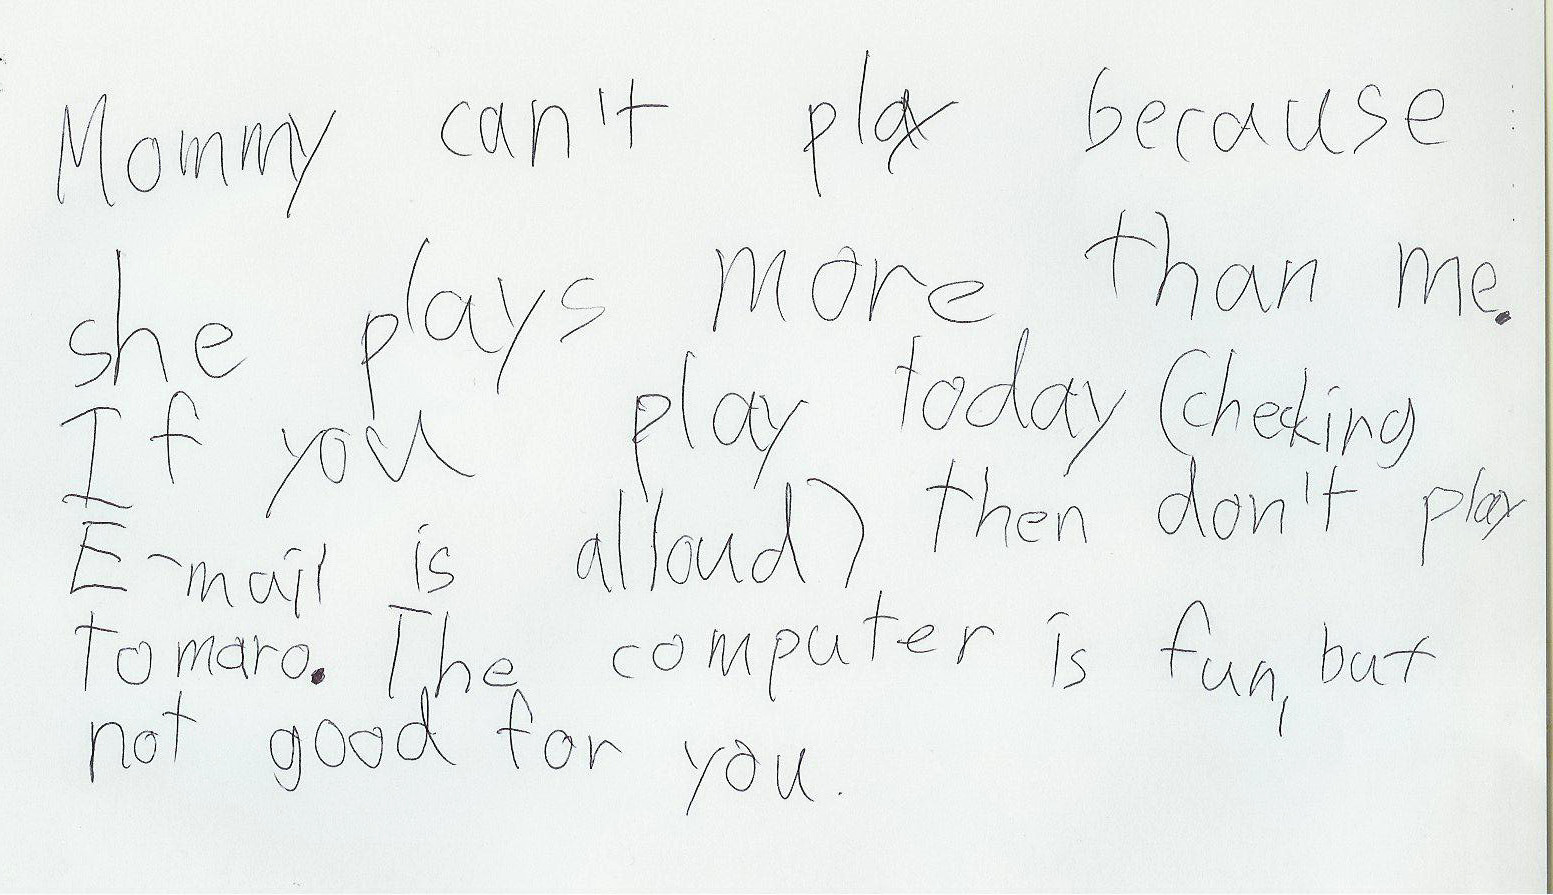 Mommy can't play because
she plays more than me.
If you play today (checking
E-mail is alloud) then don't play
tomaro. The computer is fun, but
not good for you.